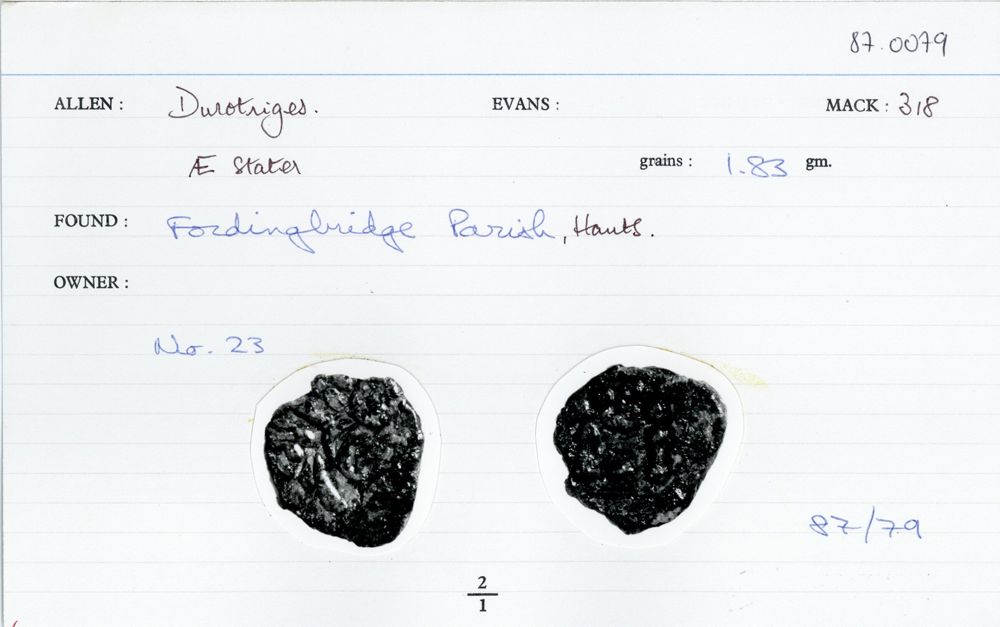 87.0079
ALLEN : Durotriges. EVANS : MACK : 318
Æ Stater grains : 1.83 gm.
FOUND : Fordingbridge Parish, Hants.
OWNER :
No. 23
87/79
2
1